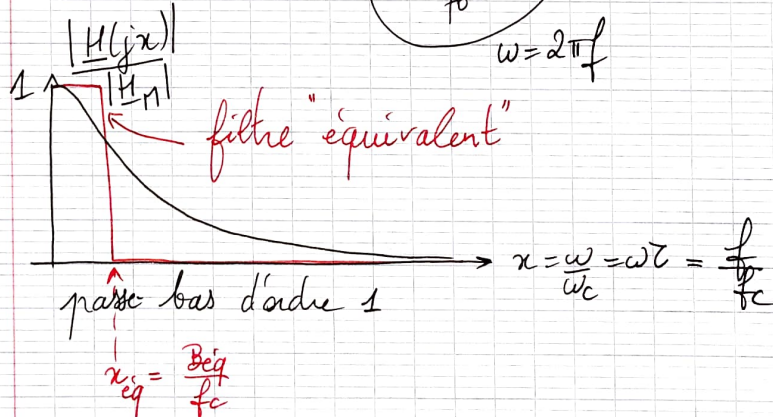 f0
ω = 2πf
|H(jx)|
|H_M|
1
filtre "équivalent"
x = ω/ω_c = ωτ = f/f_c
passe-bas d'ordre 1
x_éq = Béq/f_c